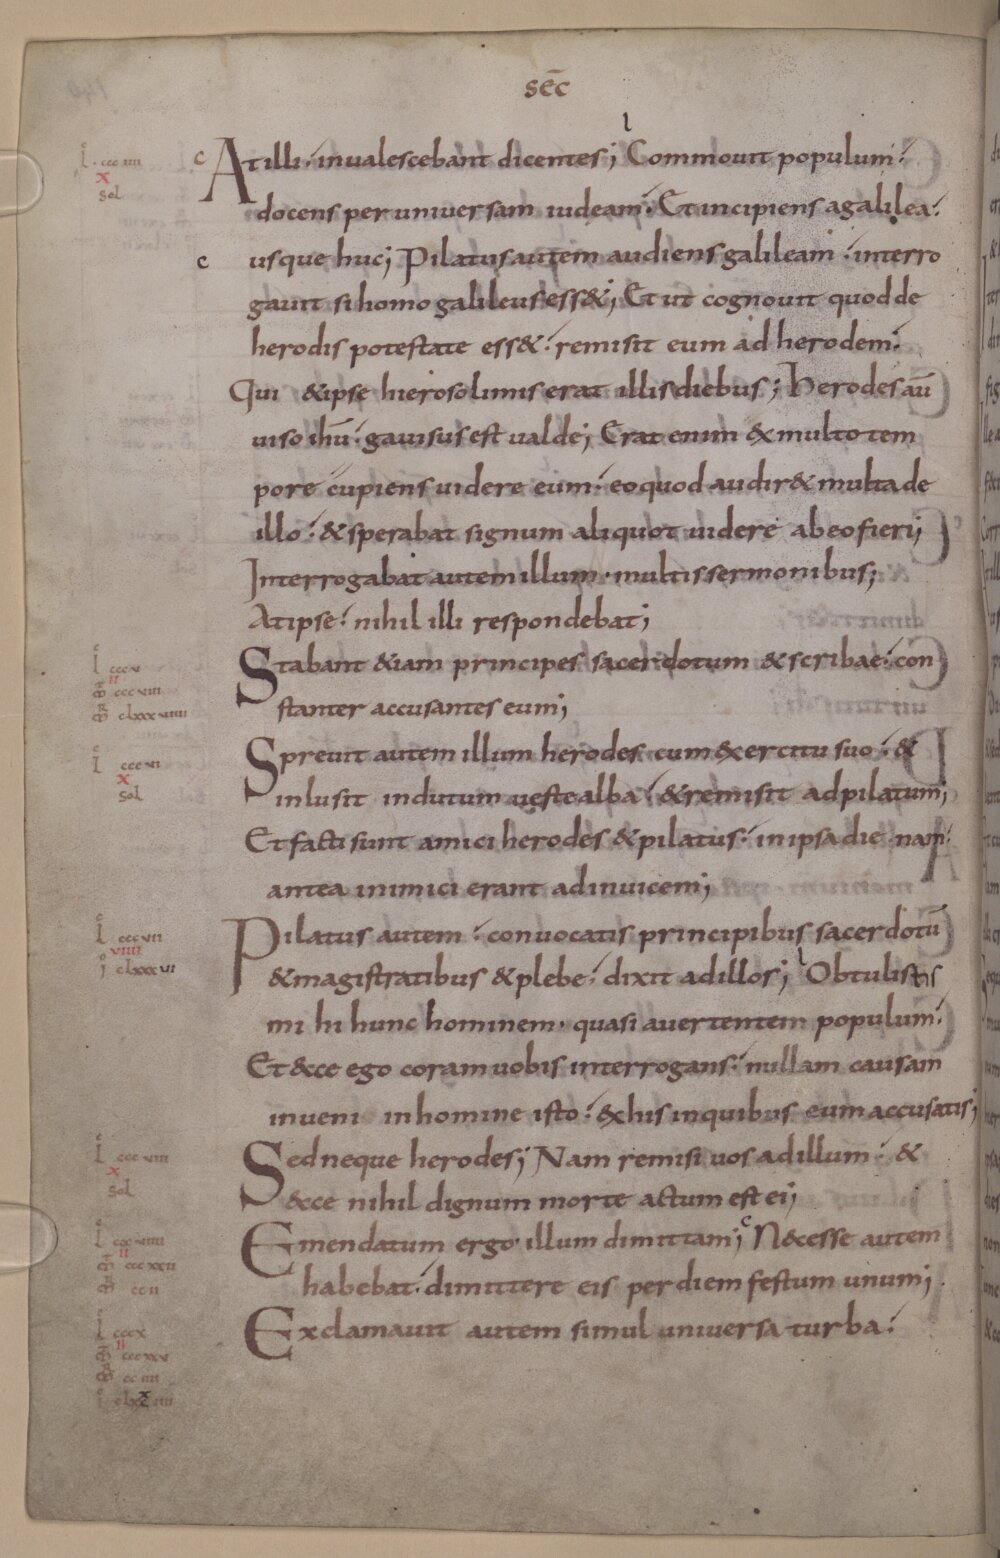 sēc
l
c At illi · inualescebant dicentes; Commouit populum ·
docens per uniuersam iudeam · Et incipiens a galilea ·
c usque huc; Pilatus autem audiens galileam · interro
gauit si homo galileus ess&; Et ut cognouit quod de
herodis potestate ess& · remisit eum ad herodem ·
Qui & ipse hierosolimis erat illis diebus; Herodes aū
uiso ihū · gauisus est ualde; Erat enim ex multo tem
pore cupiens uidere eum · eo quod audir& multa de
illo · & sperabat signum aliquot uidere ab eo fieri;
Interrogabat autem illum · multis sermonibus;
At ipse · nihil illi respondebat;
Stabant &iam principes sacerdotum & scribae · con
stanter accusantes eum;
Spreuit autem illum herodes cum exercitu suo · &
inlusit indutum ueste alba · & remisit ad pilatum;
Et facti sunt amici herodes & pilatus · in ipsa die · nam ·
antea inimici erant ad inuicem;
Pilatus autem · conuocatis principibus sacerdotū
& magistratibus & plebe · dixit ad illos; Obtulistis
mi hi hunc hominem · quasi auertentem populum ·
Et ecce ego coram uobis interrogans · nullam causam
inueni in homine isto · ex his in quibus eum accusatis;
Sed neque herodes; Nam remisi uos ad illum · &
ecce nihil dignum morte actum est ei;
Emendatum ergo · illum dimittam; c N&cesse autem
habebat · dimittere eis per diem festum unum;
Exclamauit autem simul uniuersa turba ·
l · ccc iiii
x
sol
l ccc v
ii
ccc viii
c lxxx viiii
l ccc vi
x
sol
l ccc vii
viiii
i c lxxx vi
l ccc viii
x
sol
l ccc viiii
ii
ccc xxii
cc ii
l ccc x
ii
ccc xxv
cc iiii